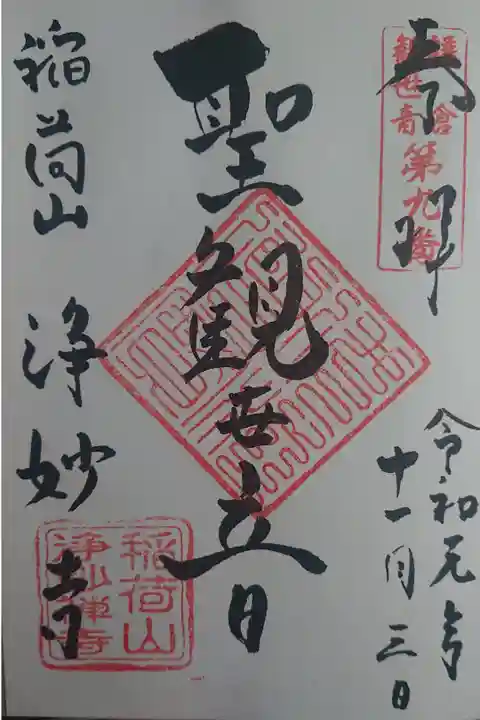 奉拝
鎌倉
観世音
第九番
令和元年
十一月三日
聖観世音
稲荷山 浄妙寺
稲荷山
浄妙禅寺